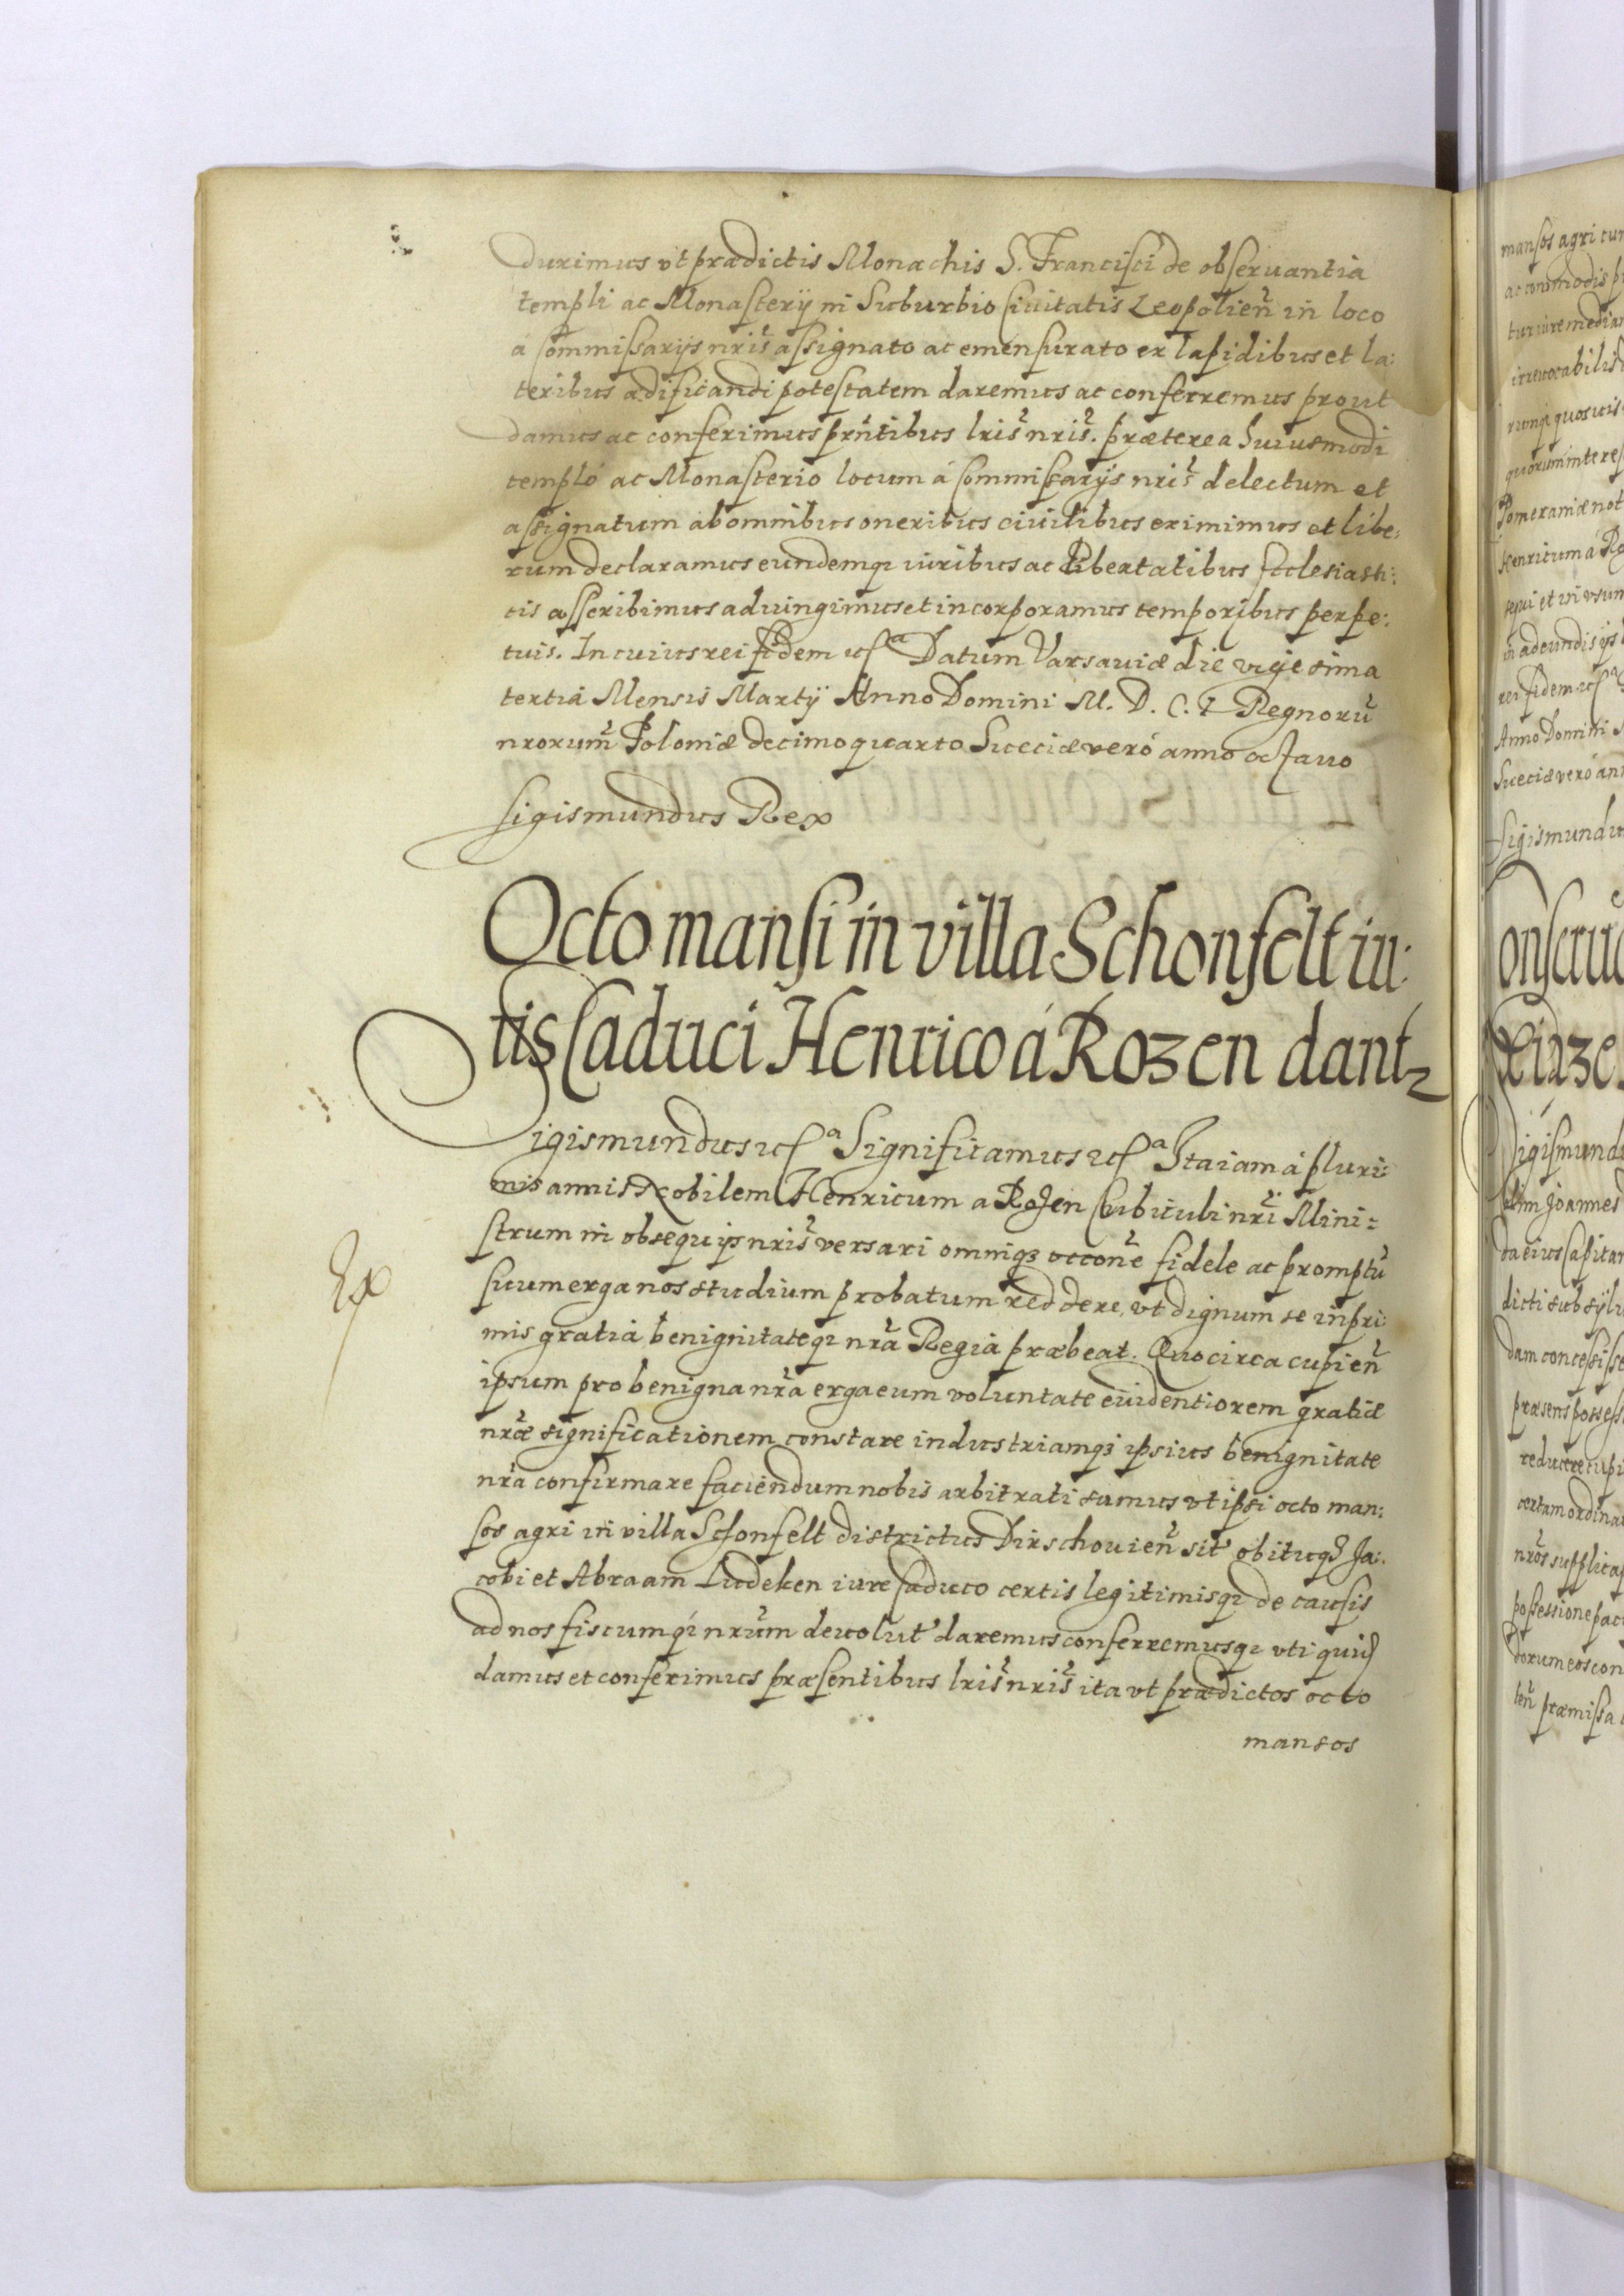 duximus vt prædictis Monachis S. Francisci de obseruantia
templi ac Monasterij in Suburbio Ciuitatis Leopolien̄ in loco
à Commissarijs nrīs assignato ac emensurato ex lapidibus et la:
teribus ædificandi potestatem daremus ac conferremus prout
damus ac conferimus prn̄tibus lrīs nrīs. præterea huiusmodi
templo ac Monasterio locum á Commissarijs nrīs delectum et
assignatum ab omnibus oneribus ciuilibus eximimus et libe:
rum declaramus eundemq; iuribus ac libertatibus Ecclesiasti:
cis asscribimus adiungimus et incorporamus temporibus perpe:
tuis. In cuius rei fidem etcª Datum Varsauiæ die vigesima
tertia Mensis Martij Anno Domini M. D. C. I Regnorū
nrorum̄ Poloniæ decimo quarto Sueciæ veró anno octauo
Sigismundus Rex
Octo mansi in villa Schonfelt iu:
ris Caduci Henrico á Rozen dant
Sigismundus etcª Significamus etcª Ita iam á pluri:
mis annis Nobilem Henricum a Rozen Cubiculi nrī Mini:
strum in obsequijs nrīs versari omniq; occone fidele ac promptū
suum erga nos studium probatum reddere, vt dignum se inpri:
mis gratiá benignitateq; nrā Regiá præbeat. Quocirca cupien̄
ipsum pro benigna nrā erga eum voluntate euidentiorem gratiæ
nræ significationem constare industriamq; ipsius benignitate
nrā confirmare faciendum nobis arbitrati sumus vt ipsi octo man:
sos agri in villa Schonfelt districtus Dirschouien̄ sit obituq; Ja:
cobi et Abraam Ludeken iure caduco certis legitimisq; de causis
ad nos fiscumq; nrūm deuolut daremus conferremusq; vti quid
damus et conferimus præsentibus lrīs nrīs ita vt prædictos octo
mansos
Ex
mansos agri cum
ac commodis
tur iure mediante
quorum interest
Pomeraniæ not
Henricum á Ro
sequi et in vsum
in adeundis ijs
rei fidem etcª
Anno Domini
Sueciæ veró an
Sigismundu
Sigismund
Joannes
da eius Capitan
dicti sub
dam concessisse
præsens possess
reducere cupi
certam ordinat
nrōs supplica
possessione pac
dorum eos con
ten̄ præmissa